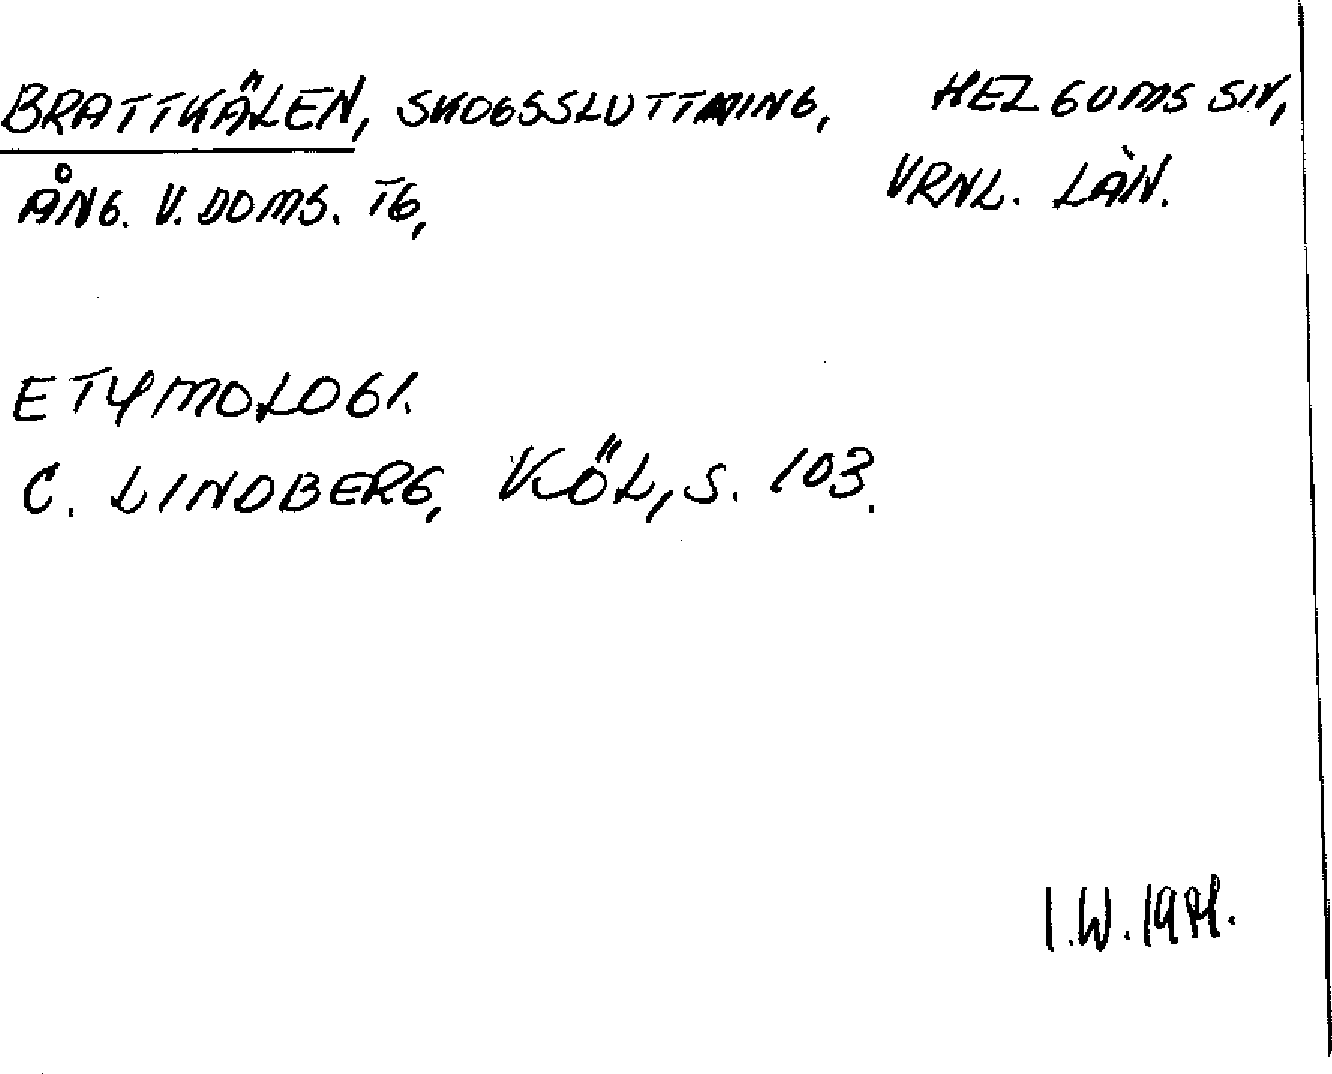 BRATTKÄLEN, SKOGSSLUTTNING, HELGUMS SN,
ÅNG. V. DOMS. TG, VRNL. LÄN.
ETYMOLOGI.
C. LINDBERG, KÖL, S. 103.
I.W.